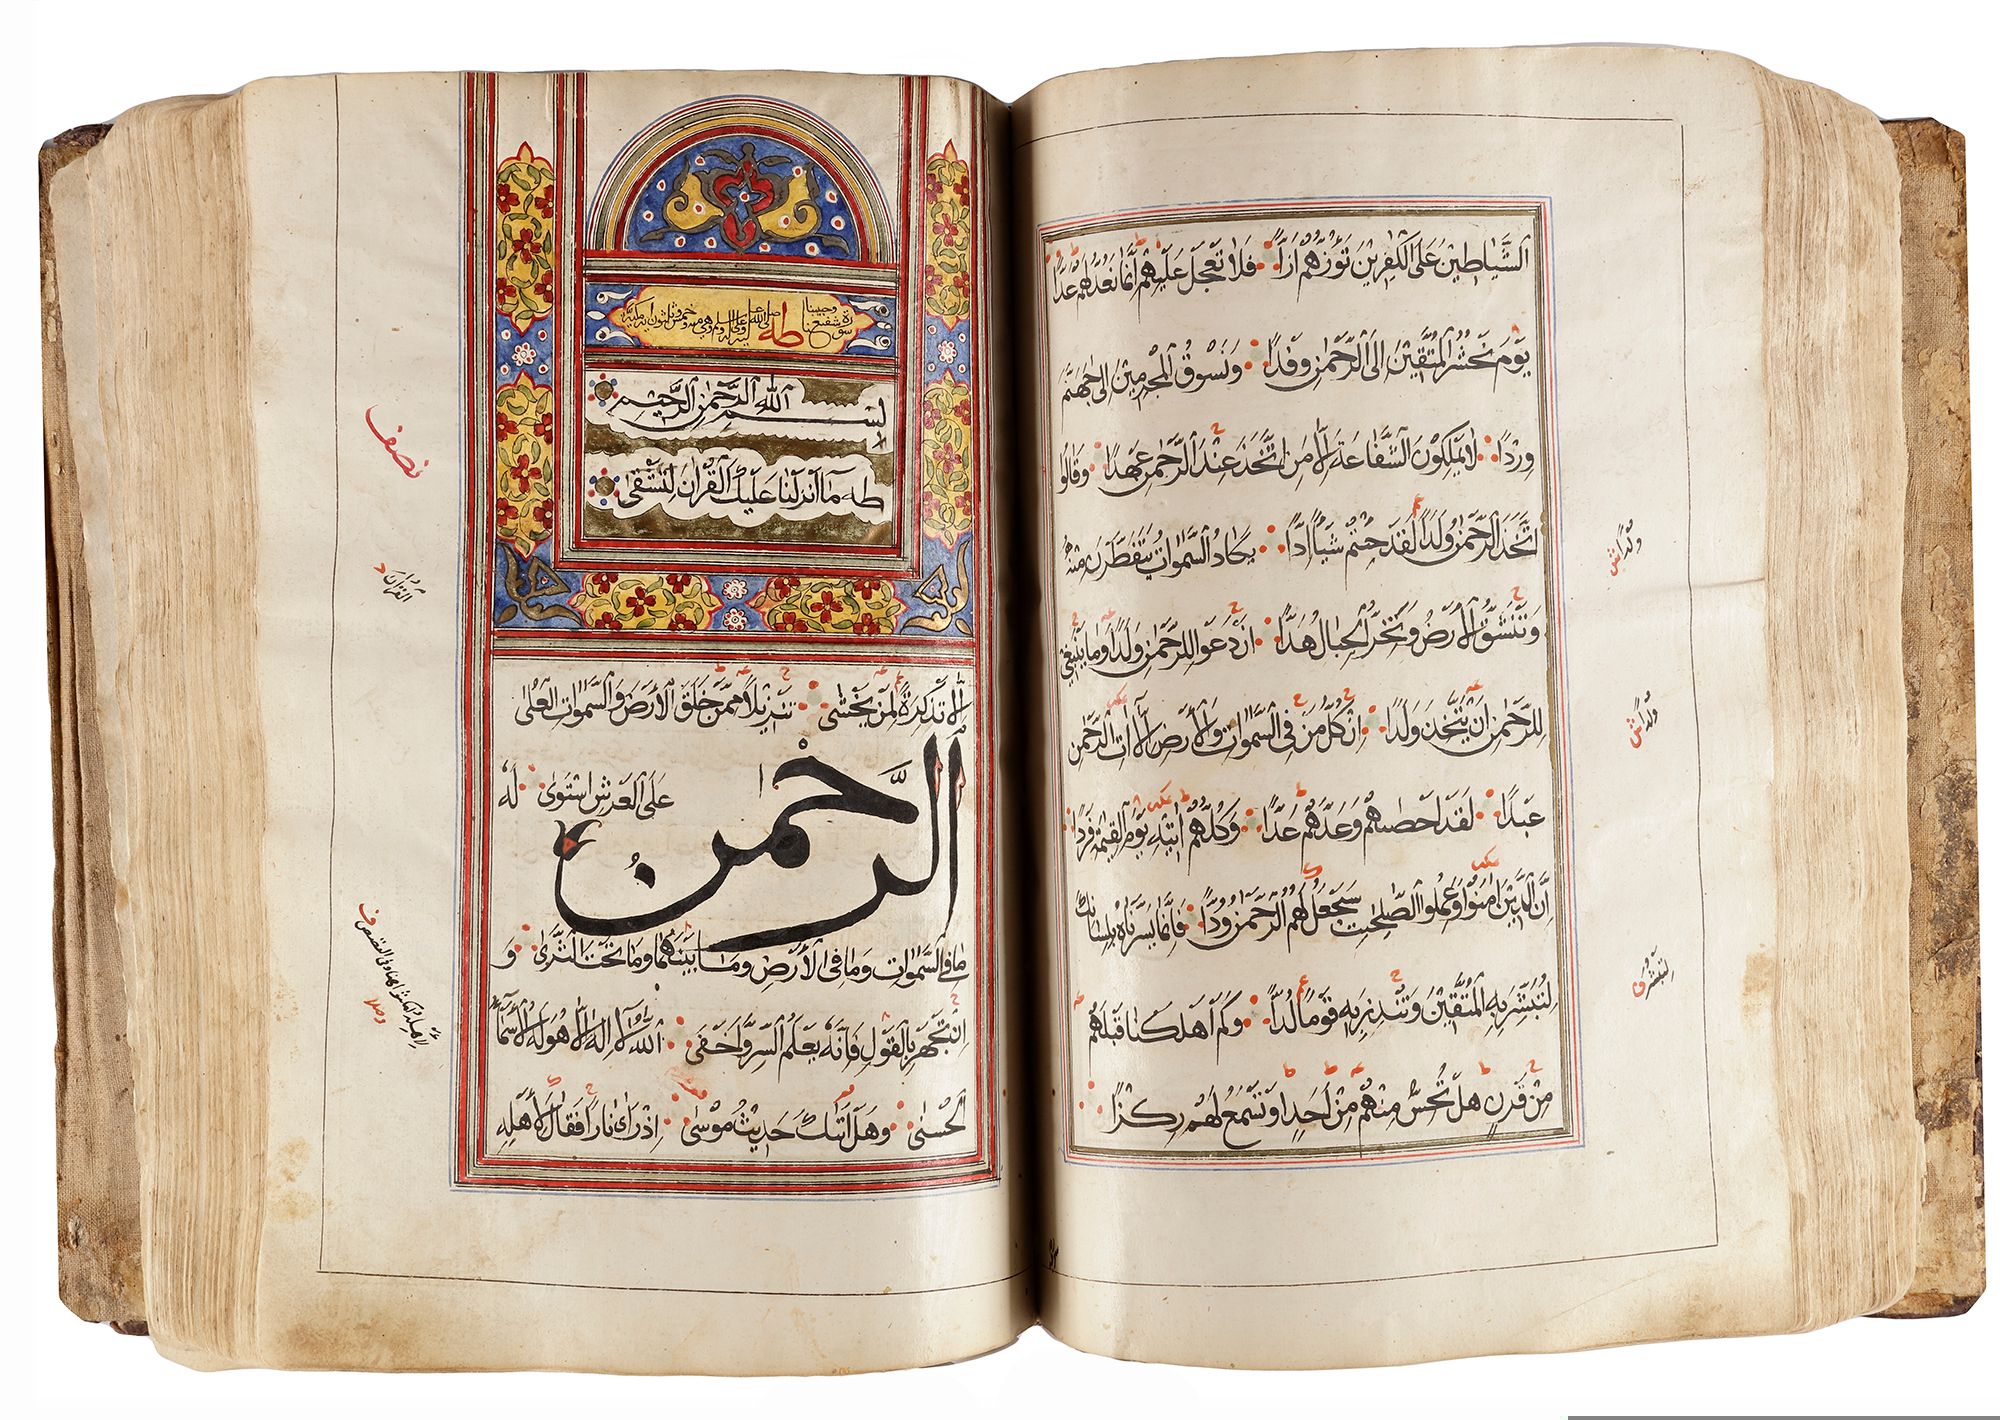 الشَّيَاطِينَ عَلَى الْكٰفِرِينَ تَؤُزُّهُمْ أَزًّا فَلَا تَعْجَلْ عَلَيْهِمْ إِنَّمَا نَعُدُّ لَهُمْ عَدًّا
يَوْمَ نَحْشُرُ الْمُتَّقِينَ إِلَى الرَّحْمٰنِ وَفْدًا وَنَسُوقُ الْمُجْرِمِينَ إِلَى جَهَنَّمَ
وِرْدًا لَا يَمْلِكُونَ الشَّفَاعَةَ إِلَّا مَنِ اتَّخَذَ عِنْدَ الرَّحْمٰنِ عَهْدًا وَقَالُوا
اتَّخَذَ الرَّحْمٰنُ وَلَدًا لَقَدْ جِئْتُمْ شَيْئًا إِدًّا يَكَادُ السَّمٰوَاتُ يَتَفَطَّرْنَ مِنْهُ
وَتَنْشَقُّ الْأَرْضُ وَتَخِرُّ الْجِبَالُ هَدًّا أَنْ دَعَوْا لِلرَّحْمٰنِ وَلَدًا وَمَا يَنْبَغِي
لِلرَّحْمٰنِ أَنْ يَتَّخِذَ وَلَدًا إِنْ كُلُّ مَنْ فِي السَّمٰوَاتِ وَالْأَرْضِ إِلَّا آتِ الرَّحْمٰنِ
عَبْدًا لَقَدْ أَحْصٰىهُمْ وَعَدَّهُمْ عَدًّا وَكُلُّهُمْ اٰتِيهِ يَوْمَ الْقِيٰمَةِ فَرْدًا
إِنَّ الَّذِينَ اٰمَنُوا وَعَمِلُوا الصّٰلِحٰتِ سَيَجْعَلُ لَهُمُ الرَّحْمٰنُ وُدًّا فَإِنَّمَا يَسَّرْنَاهُ بِلِسَانِكَ
لِتُبَشِّرَ بِهِ الْمُتَّقِينَ وَتُنْذِرَ بِهِ قَوْمًا لُدًّا وَكَمْ أَهْلَكْنَا قَبْلَهُمْ
مِنْ قَرْنٍ هَلْ تُحِسُّ مِنْهُمْ مِنْ أَحَدٍ أَوْ تَسْمَعُ لَهُمْ رِكْزًا
وُلْدًا
وُلْدًا
لِتُبَشِّرَ
سورة شفيعنا وحبيبنا طه صلى الله عليه وعلى آله وسلم وهي مئة وخمس وثلثون آية مكية
بِسْمِ اللّٰهِ الرَّحْمٰنِ الرَّحِيمِ
طه مَا أَنْزَلْنَا عَلَيْكَ الْقُرْاٰنَ لِتَشْقٰى
إِلَّا تَذْكِرَةً لِمَنْ يَخْشٰى تَنْزِيلًا مِمَّنْ خَلَقَ الْأَرْضَ وَالسَّمٰوَاتِ الْعُلٰى
الرَّحْمٰنُ
عَلَى الْعَرْشِ اسْتَوٰى لَهُ
مَا فِي السَّمٰوَاتِ وَمَا فِي الْأَرْضِ وَمَا بَيْنَهُمَا وَمَا تَحْتَ الثَّرٰى وَ
إِنْ تَجْهَرْ بِالْقَوْلِ فَإِنَّهُ يَعْلَمُ السِّرَّ وَأَخْفٰى اللّٰهُ لَا إِلٰهَ إِلَّا هُوَ لَهُ الْأَسْمَاءُ
الْحُسْنٰى وَهَلْ أَتٰىكَ حَدِيثُ مُوسٰى إِذْ رَاٰى نَارًا فَقَالَ لِأَهْلِهِ
نصف
القران